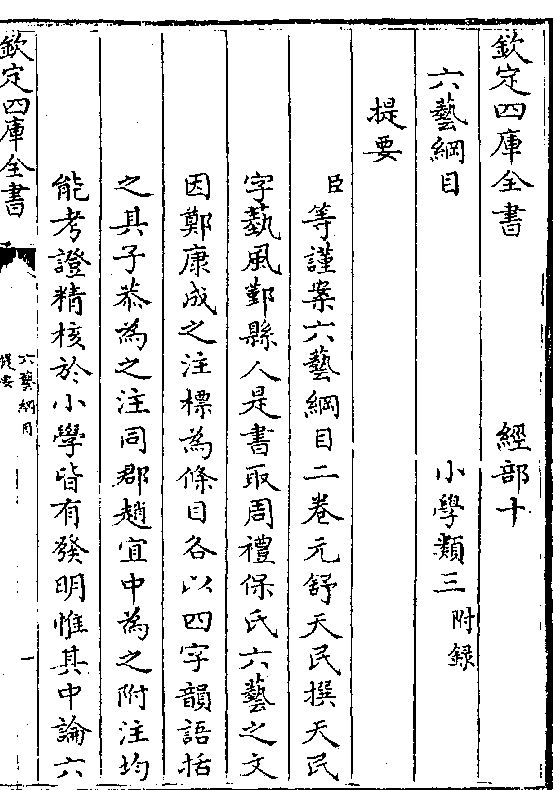 欽定四庫全書　經部十
六藝綱目　小學類三附録
提要
臣等謹案六藝綱目二卷元舒天民撰天民
字藝風鄞縣人是書取周禮保氏六藝之文
因鄭康成之注標為條目各以四字韻語括
之其子恭為之注同郡趙宜中為之附注均
能考證精核於小學皆有發明惟其中論六
欽定四庫全書
六藝綱目
提要
一